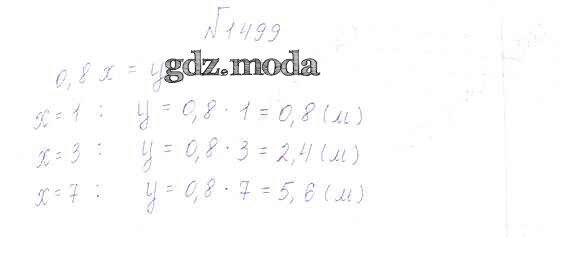 №1499
0,8 x = y
gdz.moda
x = 1 : y = 0,8 · 1 = 0,8 (м)
x = 3 : y = 0,8 · 3 = 2,4 (м)
x = 7 : y = 0,8 · 7 = 5,6 (м)